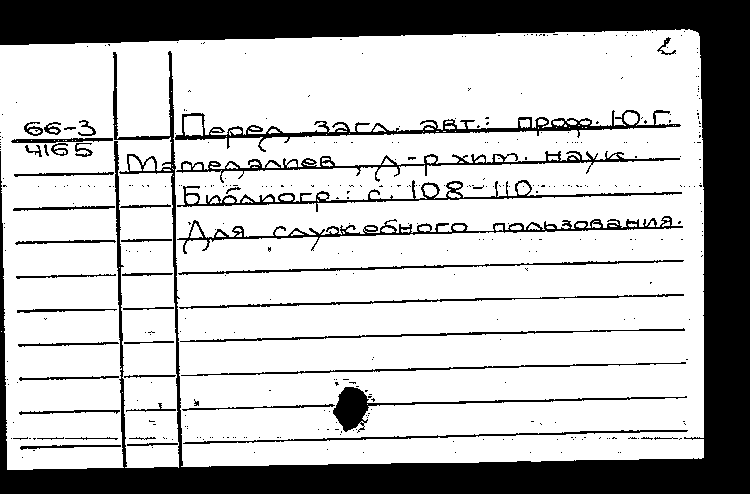 2
66-3
4165
Перед загл. авт.: проф. Ю.Г.
Мамедалиев, д-р хим. наук.
Библиогр.: с. 108-110.
Для служебного пользования.